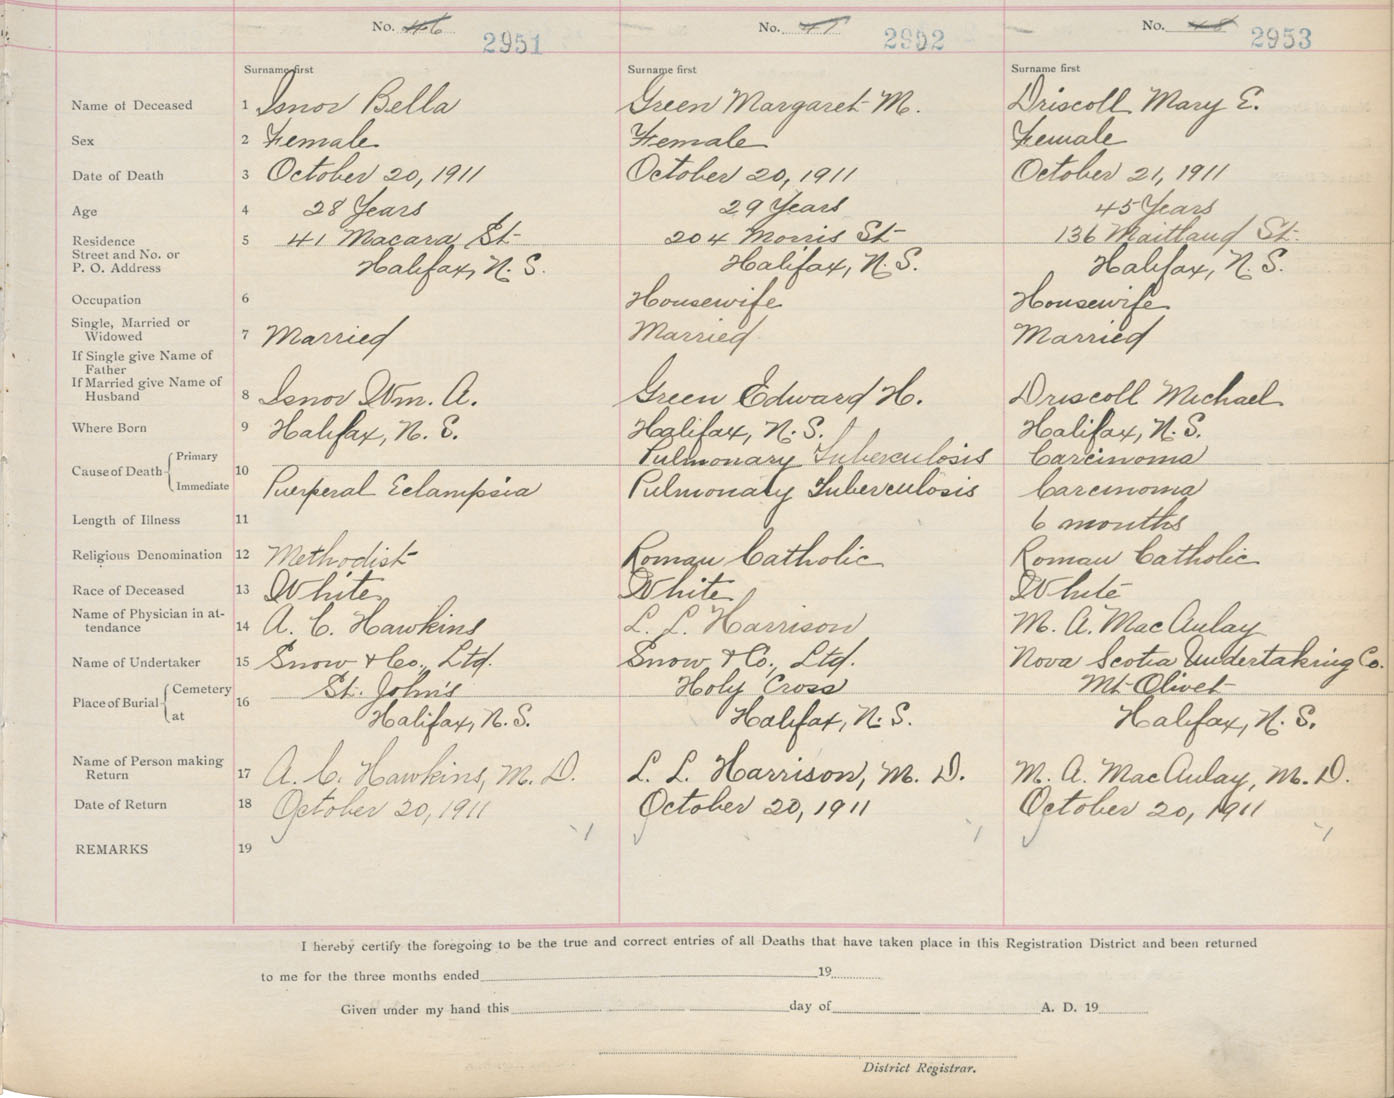 No. 46 2951 No. 47 2952 No. 48 2953
Surname first Surname first Surname first
Name of Deceased 1 Isnor Bella Green Margaret M. Driscoll Mary E.
Sex 2 Female Female Female
Date of Death 3 October 20, 1911 October 20, 1911 October 21, 1911
Age 4 28 Years 29 Years 45 Years
Residence 5 41 Macara St 204 Morris St 136 Maitland St.
Street and No. or
P. O. Address Halifax, N. S. Halifax, N. S. Halifax, N. S.
Occupation 6 Housewife Housewife
Single, Married or
Widowed 7 Married Married Married
If Single give Name of
Father
If Married give Name of
Husband 8 Isnor Wm. A. Green Edward H. Driscoll Michael
Where Born 9 Halifax, N. S. Halifax, N. S. Halifax, N. S.
Primary Pulmonary Tuberculosis Carcinoma
Cause of Death 10
Immediate Puerperal Eclampsia Pulmonary Tuberculosis Carcinoma
Length of Illness 11 6 months
Religious Denomination 12 Methodist Roman Catholic Roman Catholic
Race of Deceased 13 White White White
Name of Physician in at-
tendance 14 A. C. Hawkins L. L. Harrison M. A. MacAulay
Name of Undertaker 15 Snow & Co., Ltd. Snow & Co., Ltd. Nova Scotia Undertaking Co.
Cemetery St. John's Holy Cross Mt Olivet
Place of Burial 16
at Halifax, N. S. Halifax, N. S. Halifax, N. S.
Name of Person making
Return 17 A. C. Hawkins, M. D. L. L. Harrison, M. D. M. A. MacAulay, M. D.
Date of Return 18 October 20, 1911 October 20, 1911 October 20, 1911
REMARKS 19
I hereby certify the foregoing to be the true and correct entries of all Deaths that have taken place in this Registration District and been returned
to me for the three months ended 19
Given under my hand this day of A. D. 19
District Registrar.